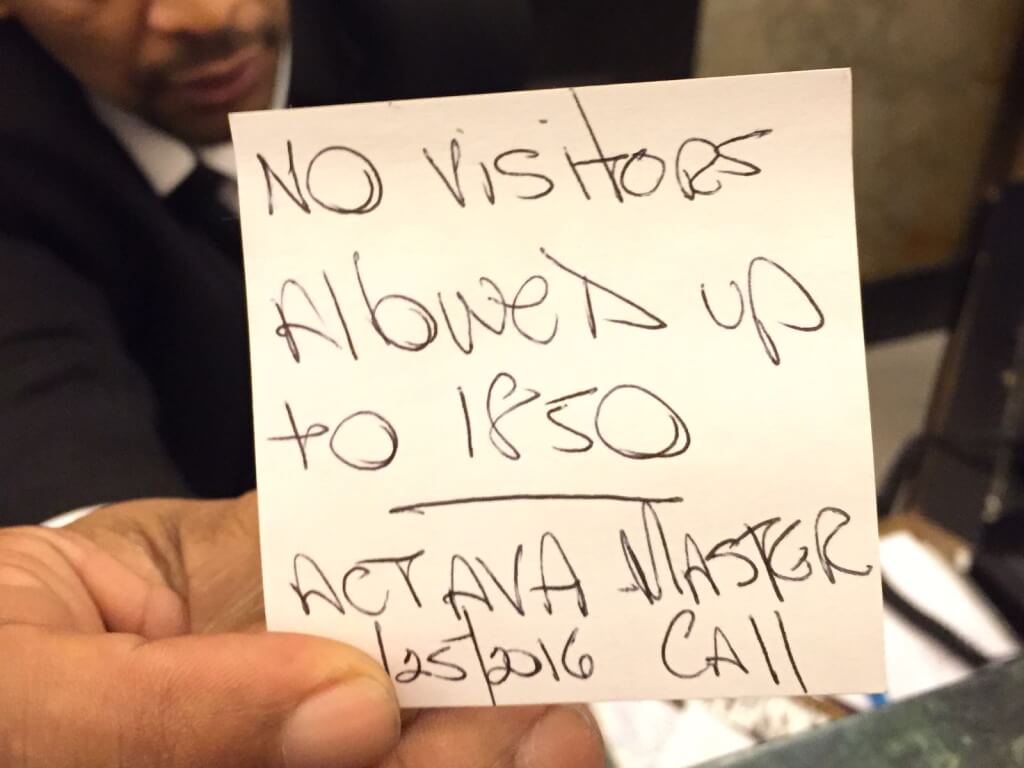 NO VISITORS
AllowED UP
to 1850
ACTAVA MASTER
1/25/2016 CAll